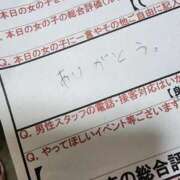 本日の女の子の総合評価
Q. 本日の女の子に一言やその他ご自由に記入
ありがとう。
Q. 男性スタッフの電話・接客対応はいか
Q. やってほしいイベント等ございます
の総合評